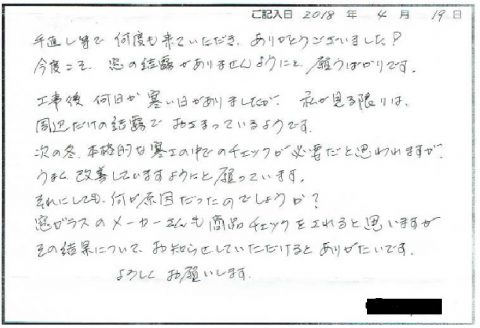 ご記入日 2018 年 4 月 19 日
手直し等で 何度も来ていただき、ありがとうございました。
今度こそ、窓の結露がありませんようにと、願うばかりです。
工事後 何日か寒い日がありましたが、私が見る限りは、
周辺だけの結露で おさまっているようです。
次の冬、本格的な寒さの中でのチェックが必要だと思われますが、
うまく改善していますようにと願っています。
それにしても、何が原因だったのでしょうか?
窓ガラスのメーカーさんも商品チェックをされると思いますが
その結果について お知らせしていただけると ありがたいです。
よろしく お願いします。